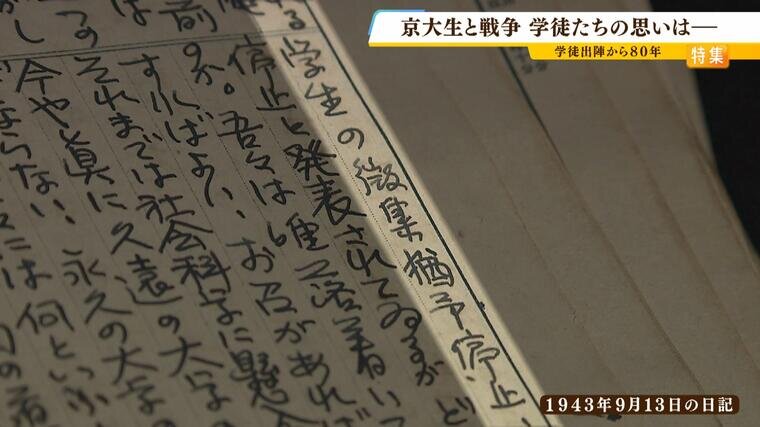 京大生と戦争 学徒たちの思いは―
学徒出陣から80年
特集
る学生の徴集猶予停止
停止と発表されてゐるがど
前のか。吾々は唯落着いて
すればよい、お召があれば
それまでは社会科学に懸
今や眞に久遠の大学
ならない、永久の大学
には何といふ
1943年9月13日の日記